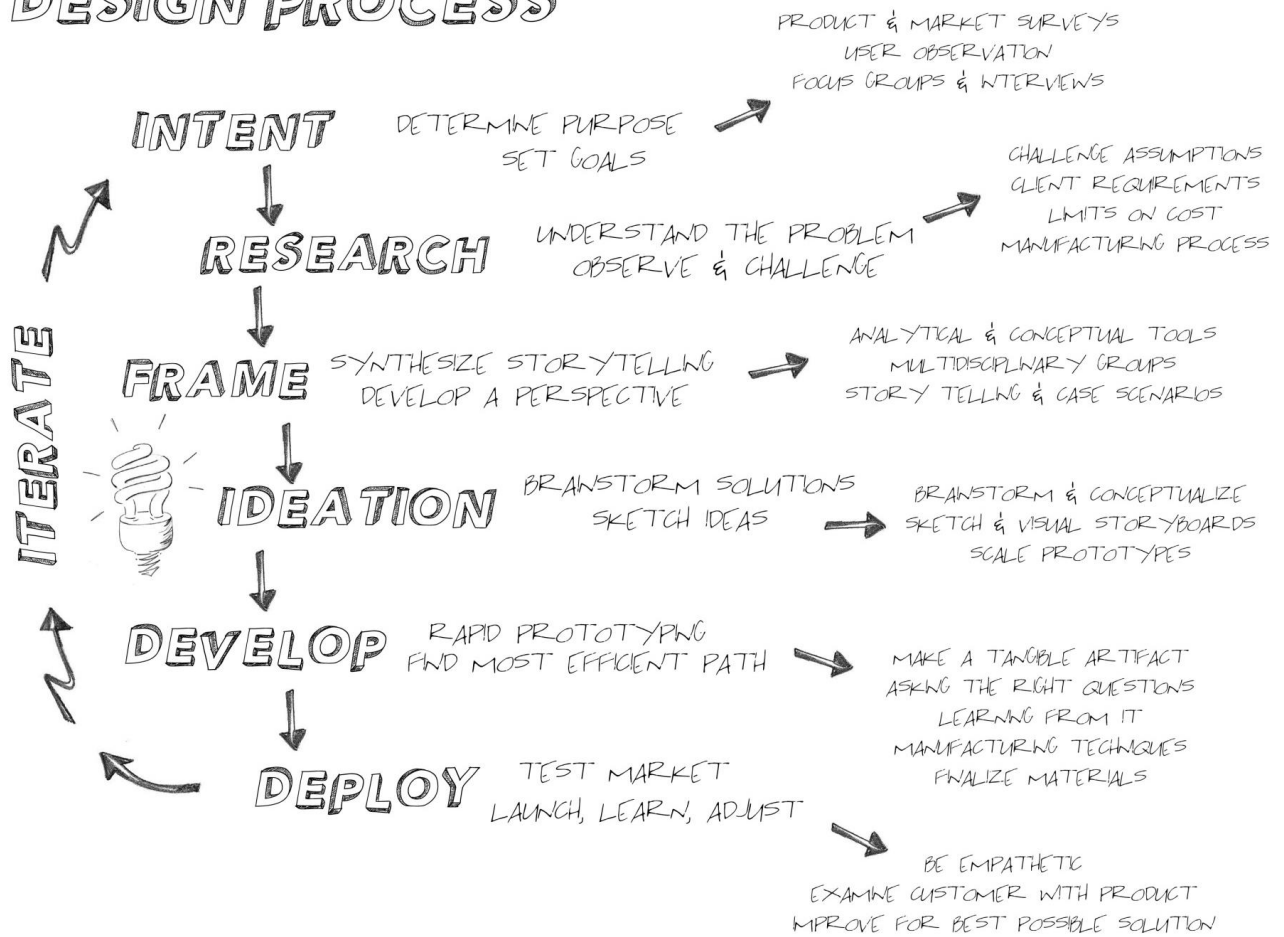 DESIGN PROCESS
PRODUCT & MARKET SURVEYS
USER OBSERVATION
FOCUS GROUPS & INTERVIEWS
INTENT
DETERMINE PURPOSE
SET GOALS
CHALLENGE ASSUMPTIONS
CLIENT REQUIREMENTS
LIMITS ON COST
MANUFACTURING PROCESS
RESEARCH
UNDERSTAND THE PROBLEM
OBSERVE & CHALLENGE
ITERATE
FRAME
SYNTHESIZE STORYTELLING
DEVELOP A PERSPECTIVE
ANALYTICAL & CONCEPTUAL TOOLS
MULTIDISCIPLINARY GROUPS
STORY TELLING & CASE SCENARIOS
IDEATION
BRAINSTORM SOLUTIONS
SKETCH IDEAS
BRAINSTORM & CONCEPTUALIZE
SKETCH & VISUAL STORYBOARDS
SCALE PROTOTYPES
DEVELOP
RAPID PROTOTYPING
FIND MOST EFFICIENT PATH
MAKE A TANGIBLE ARTIFACT
ASKING THE RIGHT QUESTIONS
LEARNING FROM IT
MANUFACTURING TECHNIQUES
FINALIZE MATERIALS
DEPLOY
TEST MARKET
LAUNCH, LEARN, ADJUST
BE EMPATHETIC
EXAMINE CUSTOMER WITH PRODUCT
IMPROVE FOR BEST POSSIBLE SOLUTION